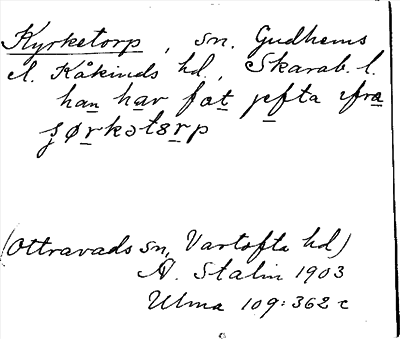 Kyrketorp, sn. Gudhems
el. Kåkinds hd., Skarab. l.
han har fat jefta ifra
ʂørkətɷrp
(Ottravads sn, Vartofta hd)
A. Stalin 1903
Ulma 109:362 c